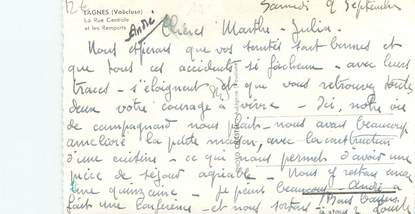 126
YAGNES (Vaucluse)
La Rue Centrale
et les Remparts
Samedi 9 Septembre
André
Chères Marthe - Julia -
Nous espérons que vos santés sont bonnes et
que tous ces accidents si fâcheux - avec leurs
traces - s'éloignent et que vous retrouvez toutes
deux votre courage à vivre - Ici, notre vie
de campagnard nous plait - nous avons beaucoup
amélioré la petite maison, avec la construction
d'une cuisine - ce qui nous permet d'avoir une
pièce de séjour agréable - Nous y restons encore
une quinzaine - je peins beaucoup - André a
fait une conférence - et nous sortons